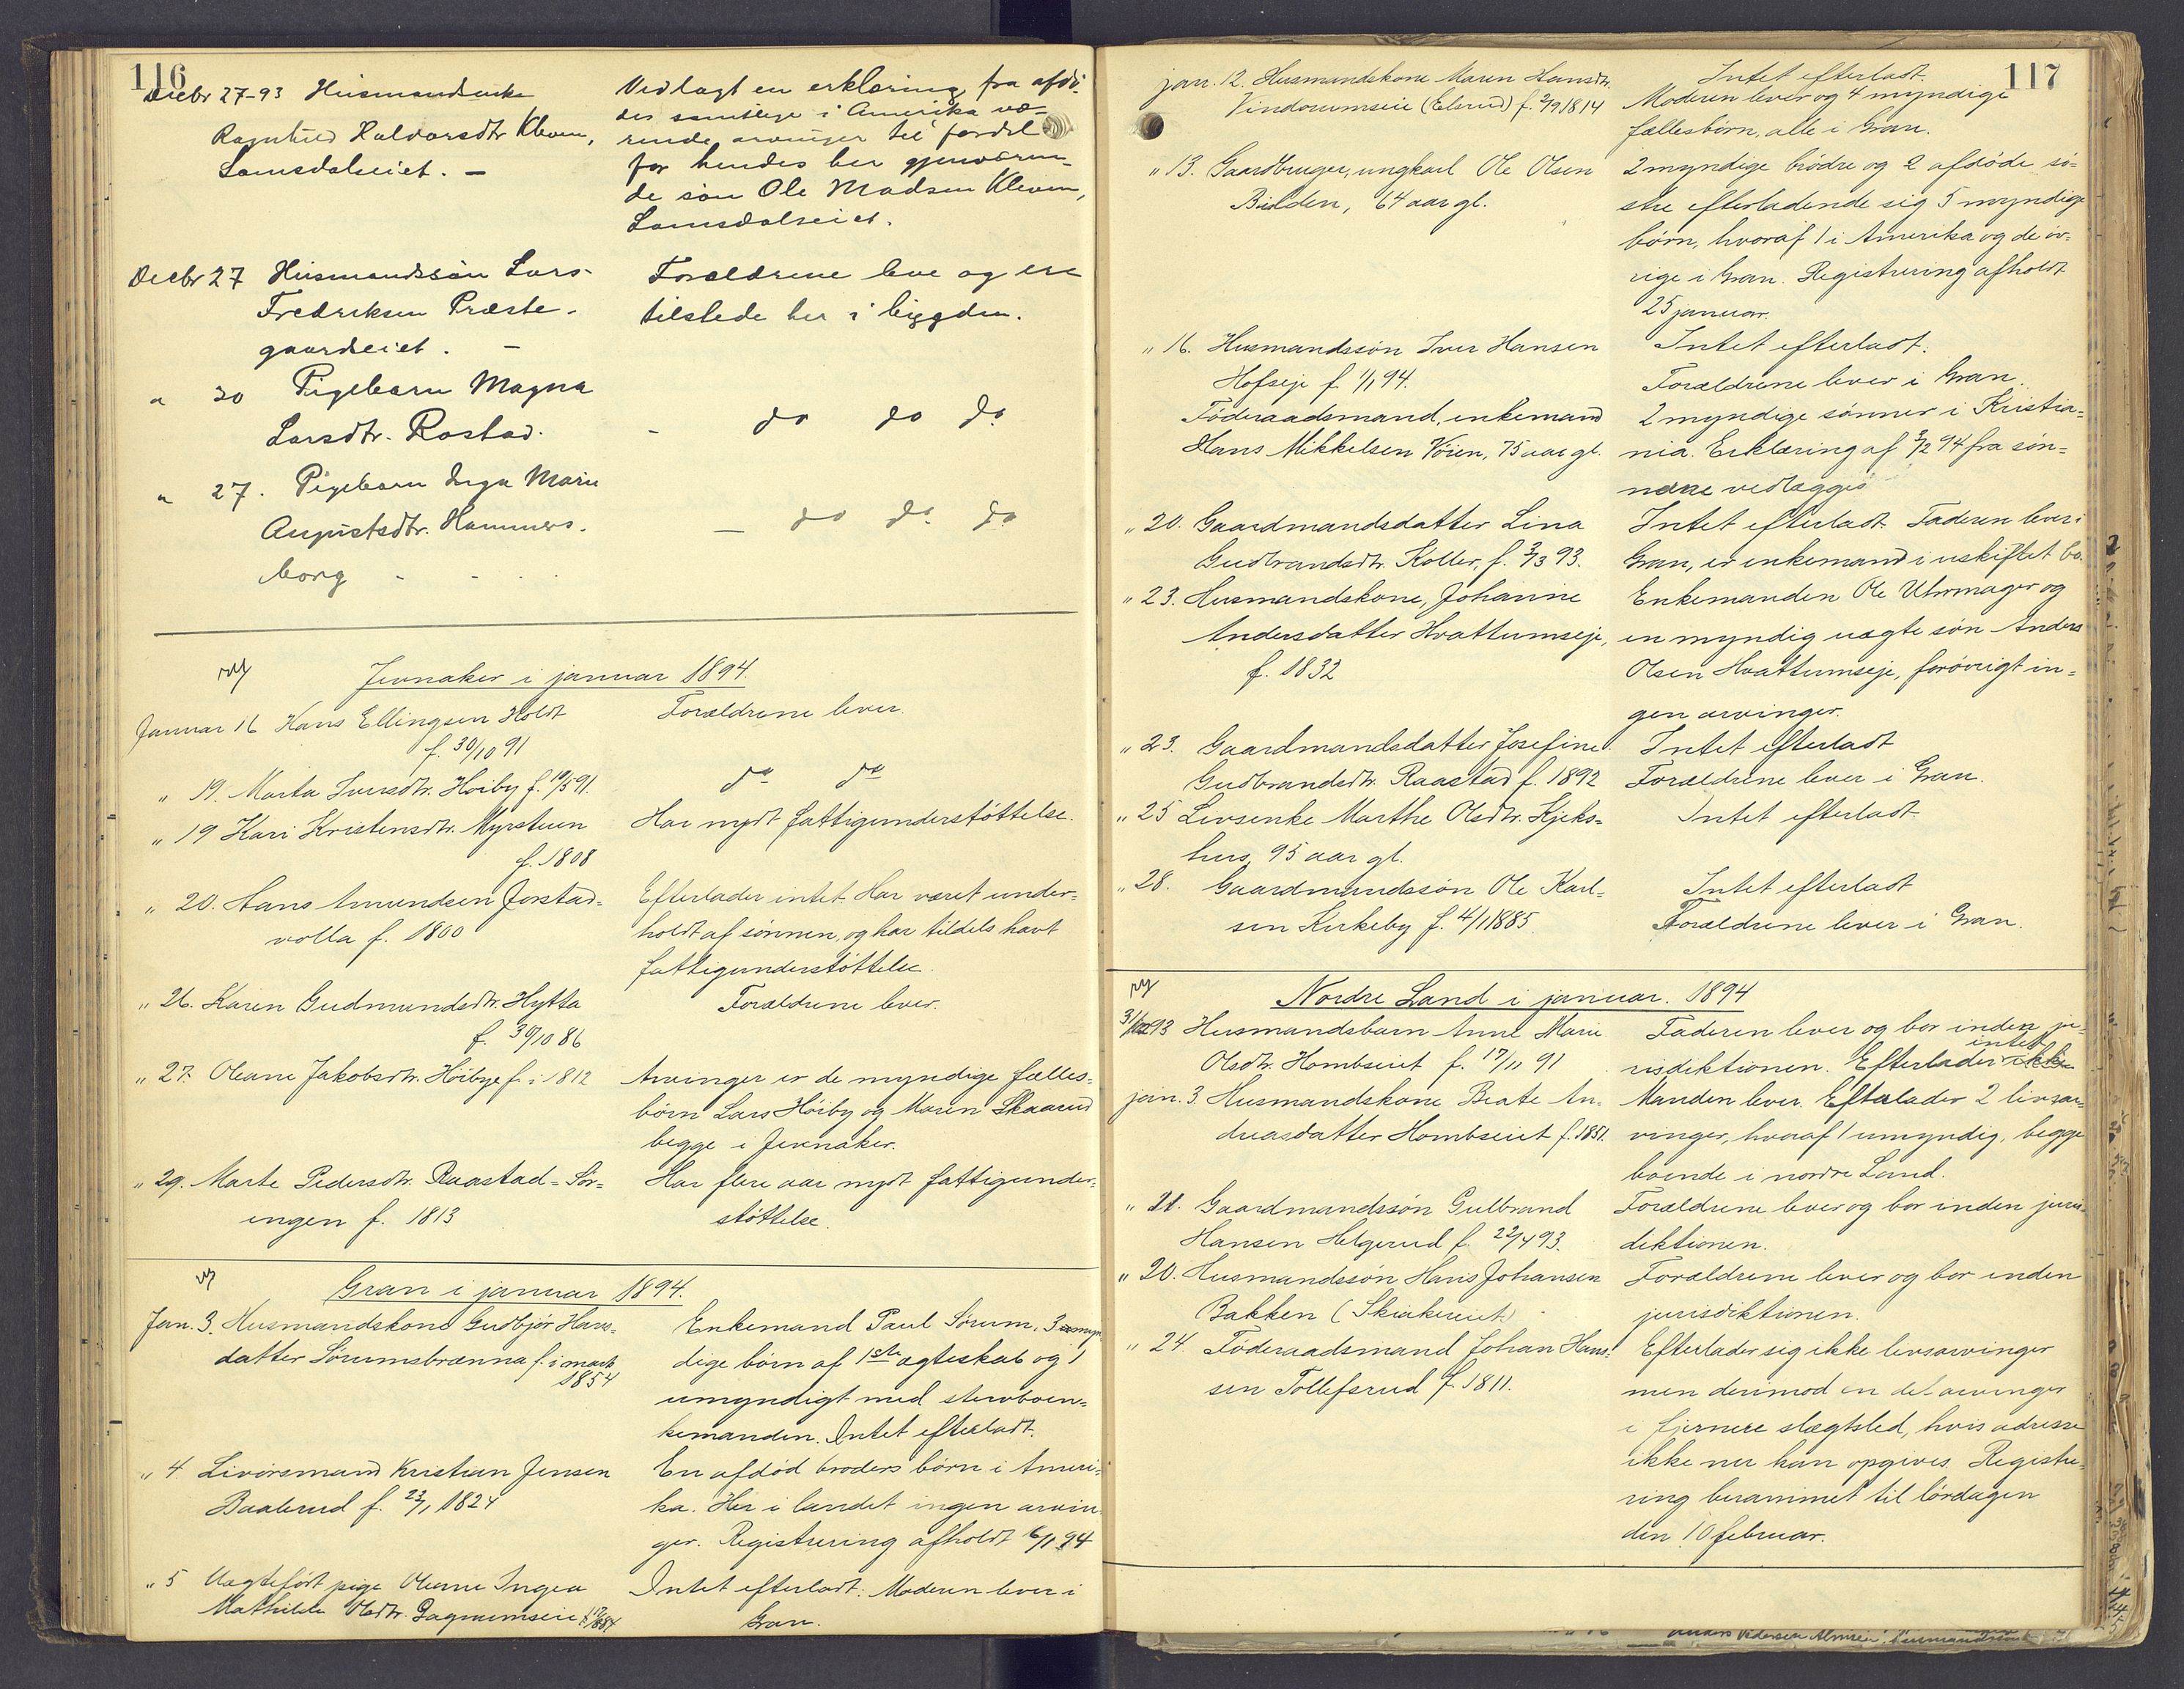 116
Decbr 27-93 Husmandsenke
Ragnhild Halvorsdtr Kleven,
Lomsdalseiet. —
Vedlagt en erklæring fra afdø-
des samtlige i Amerika væ-
rende arvinger til fordel
for hendes her gjenværen-
de søn Ole Madsen Kleven,
Lomsdalseiet.
Decbr 27 Husmandssøn Lars
Fredriksen Præste-
gaardseiet. —
Forældrene leve og ere
tilstede her i bygden.
" 30 Pigebarn Magna
Larsdtr. Rostad.
- do do do
" 27. Pigebarn Inga Marie
Augustsdtr. Hammers-
borg - - -
— do do do
Jevnaker i januar 1894.
Januar 16 Hans Ellingsen Holdt
f. 30/10 91
Forældrene lever.
" 19. Marta Iversdtr. Høiby f. 19/5 91.
do do
" 19 Kari Kristensdtr. Myrstuen
f. 1808
Har nydt fattigunderstøttelse.
" 20. Hans Amundsen Jorstad-
volla f. 1800
Efterlader intet. Har været under-
holdt af sønnen, og har tildels havt
fattigunderstøttelse.
" 26. Karen Gudmundsdtr. Hytta
f. 30/10 86
Forældrene lever.
" 27. Oleane Jakobsdtr. Høibye f. i 1812
Arvinger er de myndige fælles-
børn Lars Høiby og Maren Skaarud
begge i Jevnaker.
" 29. Marte Pedersdtr. Raastad-Sør-
ingen f. 1813
Har flere aar nydt fattigunder-
støttelse.
Gran i januar 1894.
Jan. 3. Husmandskone Gudbjør Hans-
datter Sørumsbrænna f. i marts
1854
Enkemand Paul Sørum, 3 myn-
dige børn af 1ste ægteskab og 1
umyndigt med stervboen-
kemanden. Intet efterladt.
" 4. Livørsmand Kristian Jensen
Baalerud f. 23/1 1824
En afdød broders børn i Ameri-
ka. Her i landet ingen arvin-
ger. Registrering afholdt 16/1 94
" 5 Uægtefødt pige Oleane Ingea
Mathilde Olsdtr. Dagnumseie
Intet efterladt. Moderen lever i
Gran.
117
jan. 12. Husmandskone Maren Hansdtr.
Vindorumseie (Elsrud) f. 2/9 1814
Intet efterladt.
Moderen lever og 4 myndige
fællesbørn, alle i Gran.
" 13. Gaardbruger, ungkarl Ole Olsen
Bilden, 64 aar gl.
2 myndige brødre og 2 afdøde sø-
stre efterladende sig 5 myndige
børn, hvoraf 1 i Amerika og de øv-
rige i Gran. Registrering afholdt
25 januar.
" 16. Husmandssøn Iver Hansen
Hofseje f. 1/1 94.
Intet efterladt.
Forældrene lever i Gran.
Føderaadsmand, enkemand
Hans Mikkelsen Vøien, 75 aar gl.
2 myndige sønner i Kristia-
nia. Erklæring af 3/2 94 fra søn-
nerne vedlægges
" 20. Gaardmandsdatter Lina
Gudbrandsdtr. Koller, f. 3/3 93.
Intet efterladt. Faderen lever i
Gran, er enkemand i uskiftet bo.
" 23. Husmandskone, Johanne
Andersdatter Hvattumseje,
f. 1832
Enkemanden Ole Uhrmager og
en myndig uægte søn Anders
Olsen Hvattumseje, forøvrigt in-
gen arvinger.
" 23. Gaardmandsdatter Josefine
Gudbrandsdtr. Raastad f. 1892
Intet efterladt
Forældrene lever i Gran.
" 25 Levsenke Marthe Olsdtr. Kjeks-
hus, 95 aar gl.
Intet efterladt.
" 28. Gaardmandssøn Ole Karl-
sen Kirkeby f. 4/1 1885.
Intet efterladt
Forældrene lever i Gran.
Nordre Land i januar. 1894
31/12 93 Husmandsbarn Anne Marie
Olsdtr. Hombseiet f. 17/11 91
Faderen lever og bor inden ju-
risdiktionen. Efterlader ikke intet
jan. 3. Husmandskone Beate An-
dreasdatter Hombseiet f. 1851.
Manden lever. Efterlader 2 livsar-
vinger, hvoraf 1 umyndig, begge
boende i nordre Land.
" 21. Gaardmandssøn Gulbrand
Hansen Helgerud f. 22/4 93.
Forældrene lever og bor inden juris-
diktionen.
" 20. Husmandssøn Hans Johansen
Bakken (Skiakereiet)
Forældrene lever og bor inden
jurisdiktionen.
" 24. Føderaadsmand Johan Han-
sen Tollefsrud f. 1811.
Efterlader sig ikke livsarvinger
men derimod en del arvinger
i fjernere slægtsled, hvis adresse
ikke nu kan opgives. Registre-
ring berammet til lørdagen
den 10 februar.